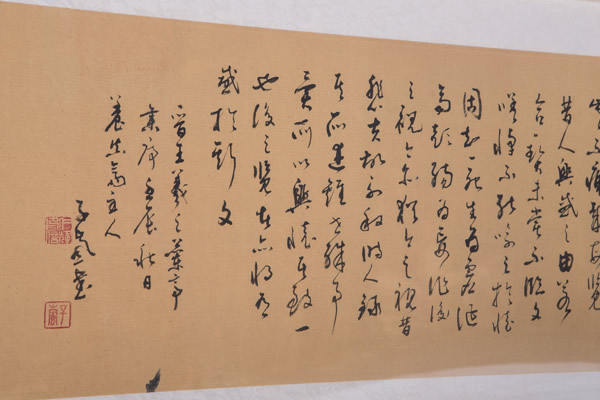 豈不痛哉每覽
昔人興感之由若
合一契未嘗不臨文
嗟悼不能喻之於懷
固知一死生為虚誕
齊彭殤為妄作後
之視今亦猶今之視昔
悲夫故列叙時人録
其所述雖世殊事
異所以興懷其致一
也後之覽者亦將有
感於斯文
晋王羲之蘭亭
集序壬辰秋日
養真齋主人
子